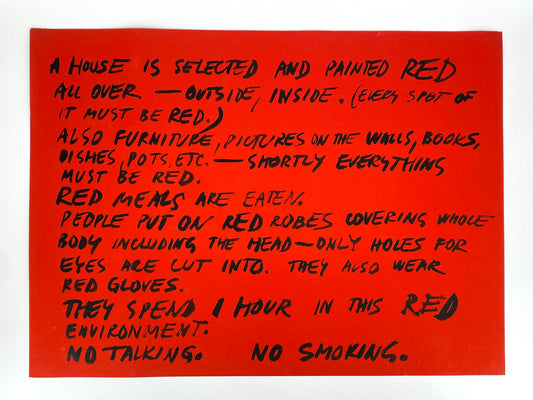 A HOUSE IS SELECTED AND PAINTED RED
ALL OVER — OUTSIDE, INSIDE. (EVERY SPOT OF
IT MUST BE RED.)
ALSO FURNITURE, PICTURES ON THE WALLS, BOOKS,
DISHES, POTS, ETC. — SHORTLY EVERYTHING
MUST BE RED.
RED MEALS ARE EATEN.
PEOPLE PUT ON RED ROBES COVERING WHOLE
BODY INCLUDING THE HEAD — ONLY HOLES FOR
EYES ARE CUT INTO. THEY ALSO WEAR
RED GLOVES.
THEY SPEND 1 HOUR IN THIS RED
ENVIRONMENT.
NO TALKING. NO SMOKING.